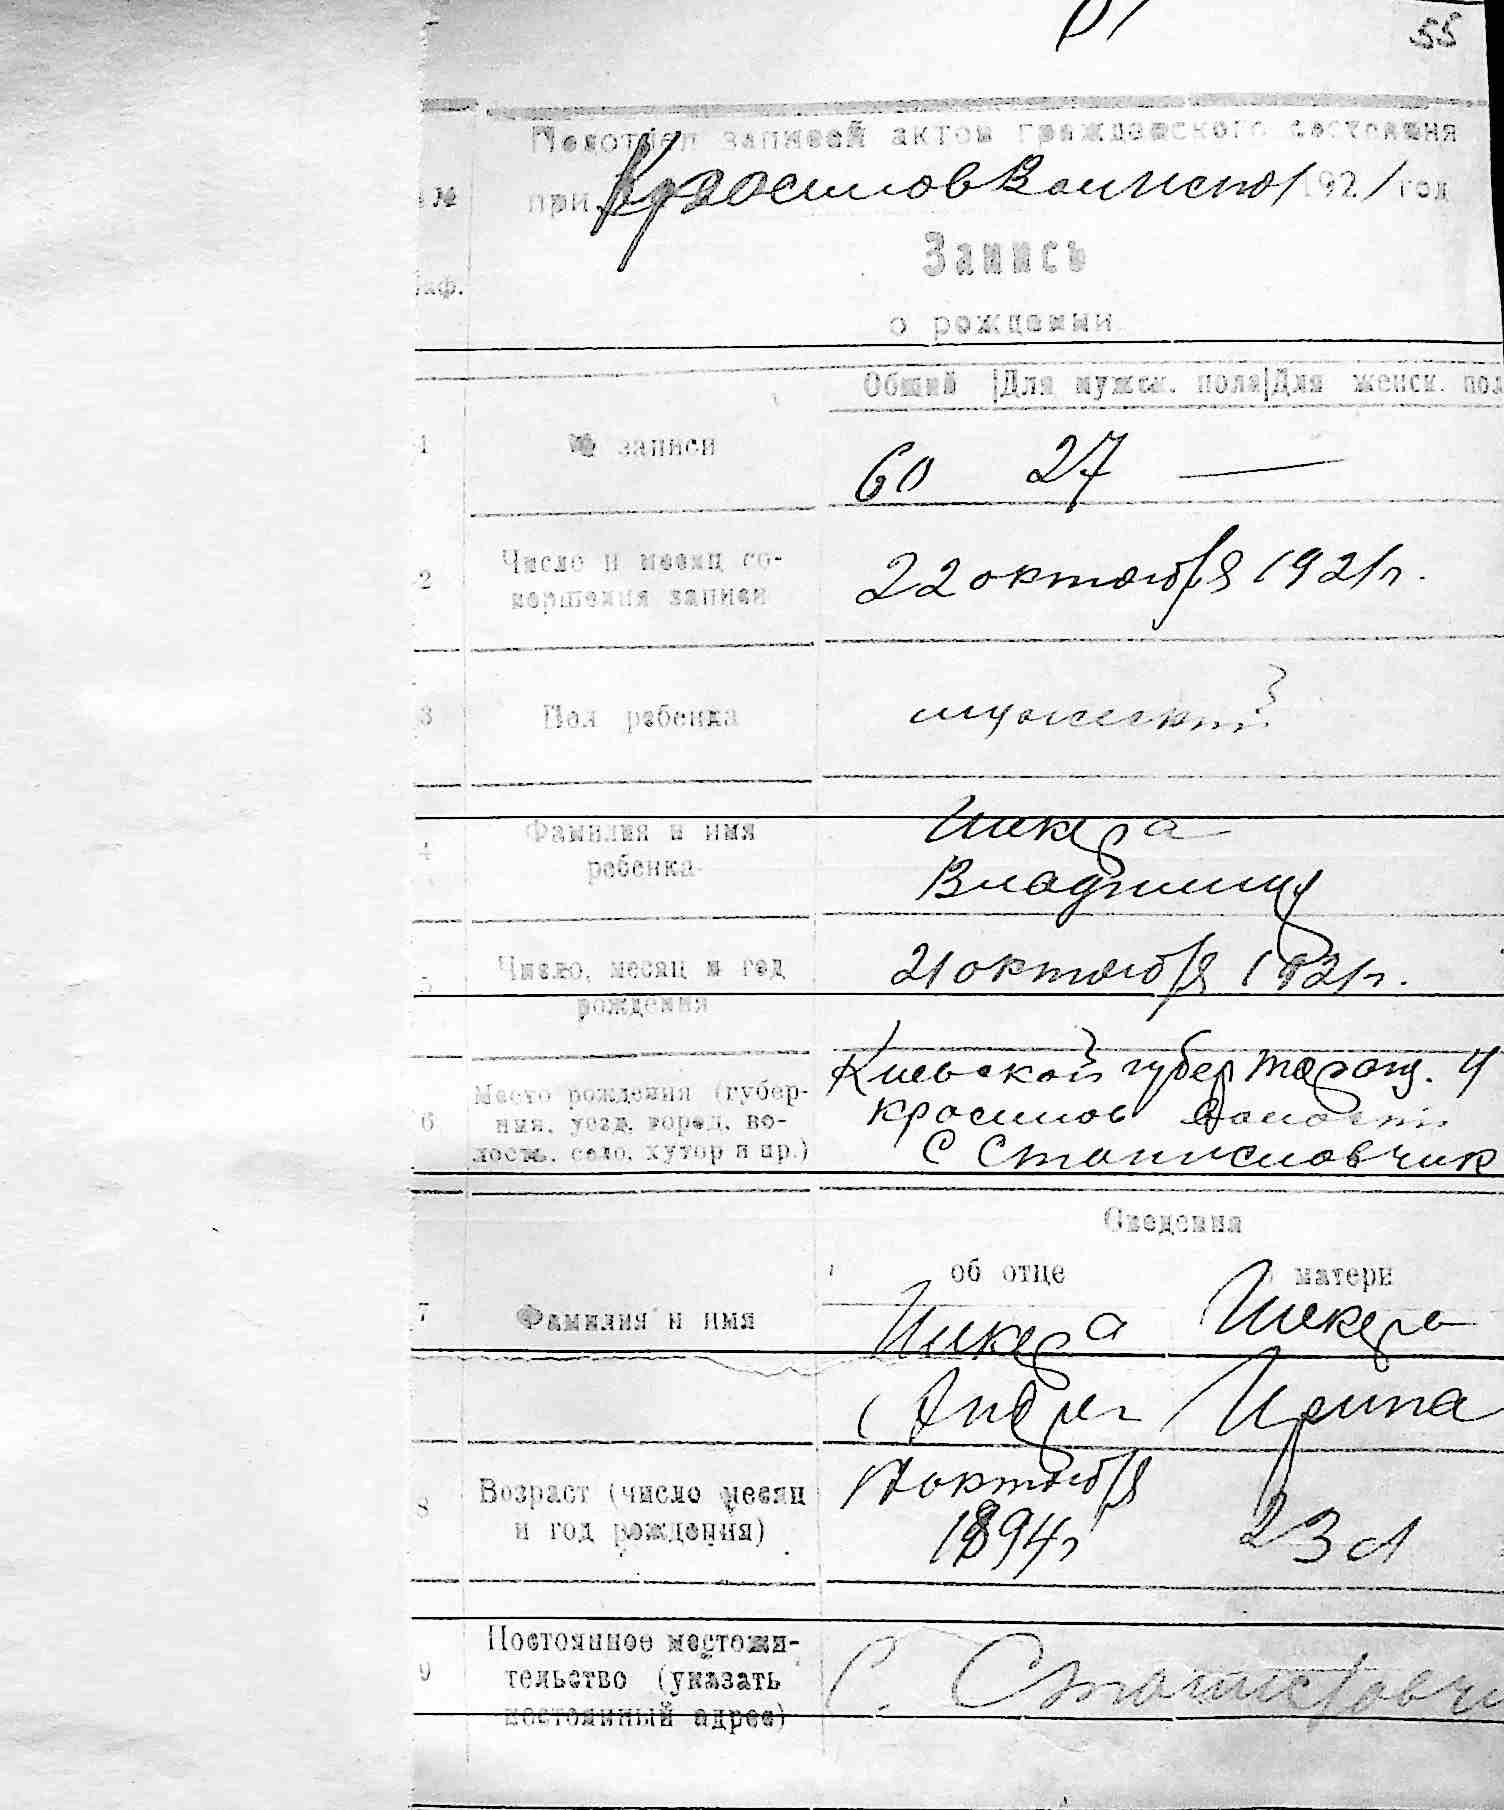 55
Подотдел записей актов гражданского состояния
№
при Красилов Волиспол 1921 год
Запись
аф.
о рождении
Общий Для мужск. пола Для женск. пол
1 № записи 60 27 —
2 Число и месяц со-
вершения записи 22 октября 1921 г.
3 Пол ребенка мужеский
4 Фамилия и имя
ребенка Шкера
Владимир
5 Число, месяц и год
рождения 21 октября 1921 г.
6 Место рождения (губер-
ния, уезд, город, во-
лость, село, хутор и пр.)
Киевской губер Таращ. у
Красилов волости
С Станиславчик
Сведения
об отце матери
7 Фамилия и имя Шкера Шкера
Андрей Ирина
8 Возраст (число месяц
и год рождения) октября
1894 г 23 л
9 Постоянное местожи-
тельство (указать
постоянный адрес)
С. Станиславчи